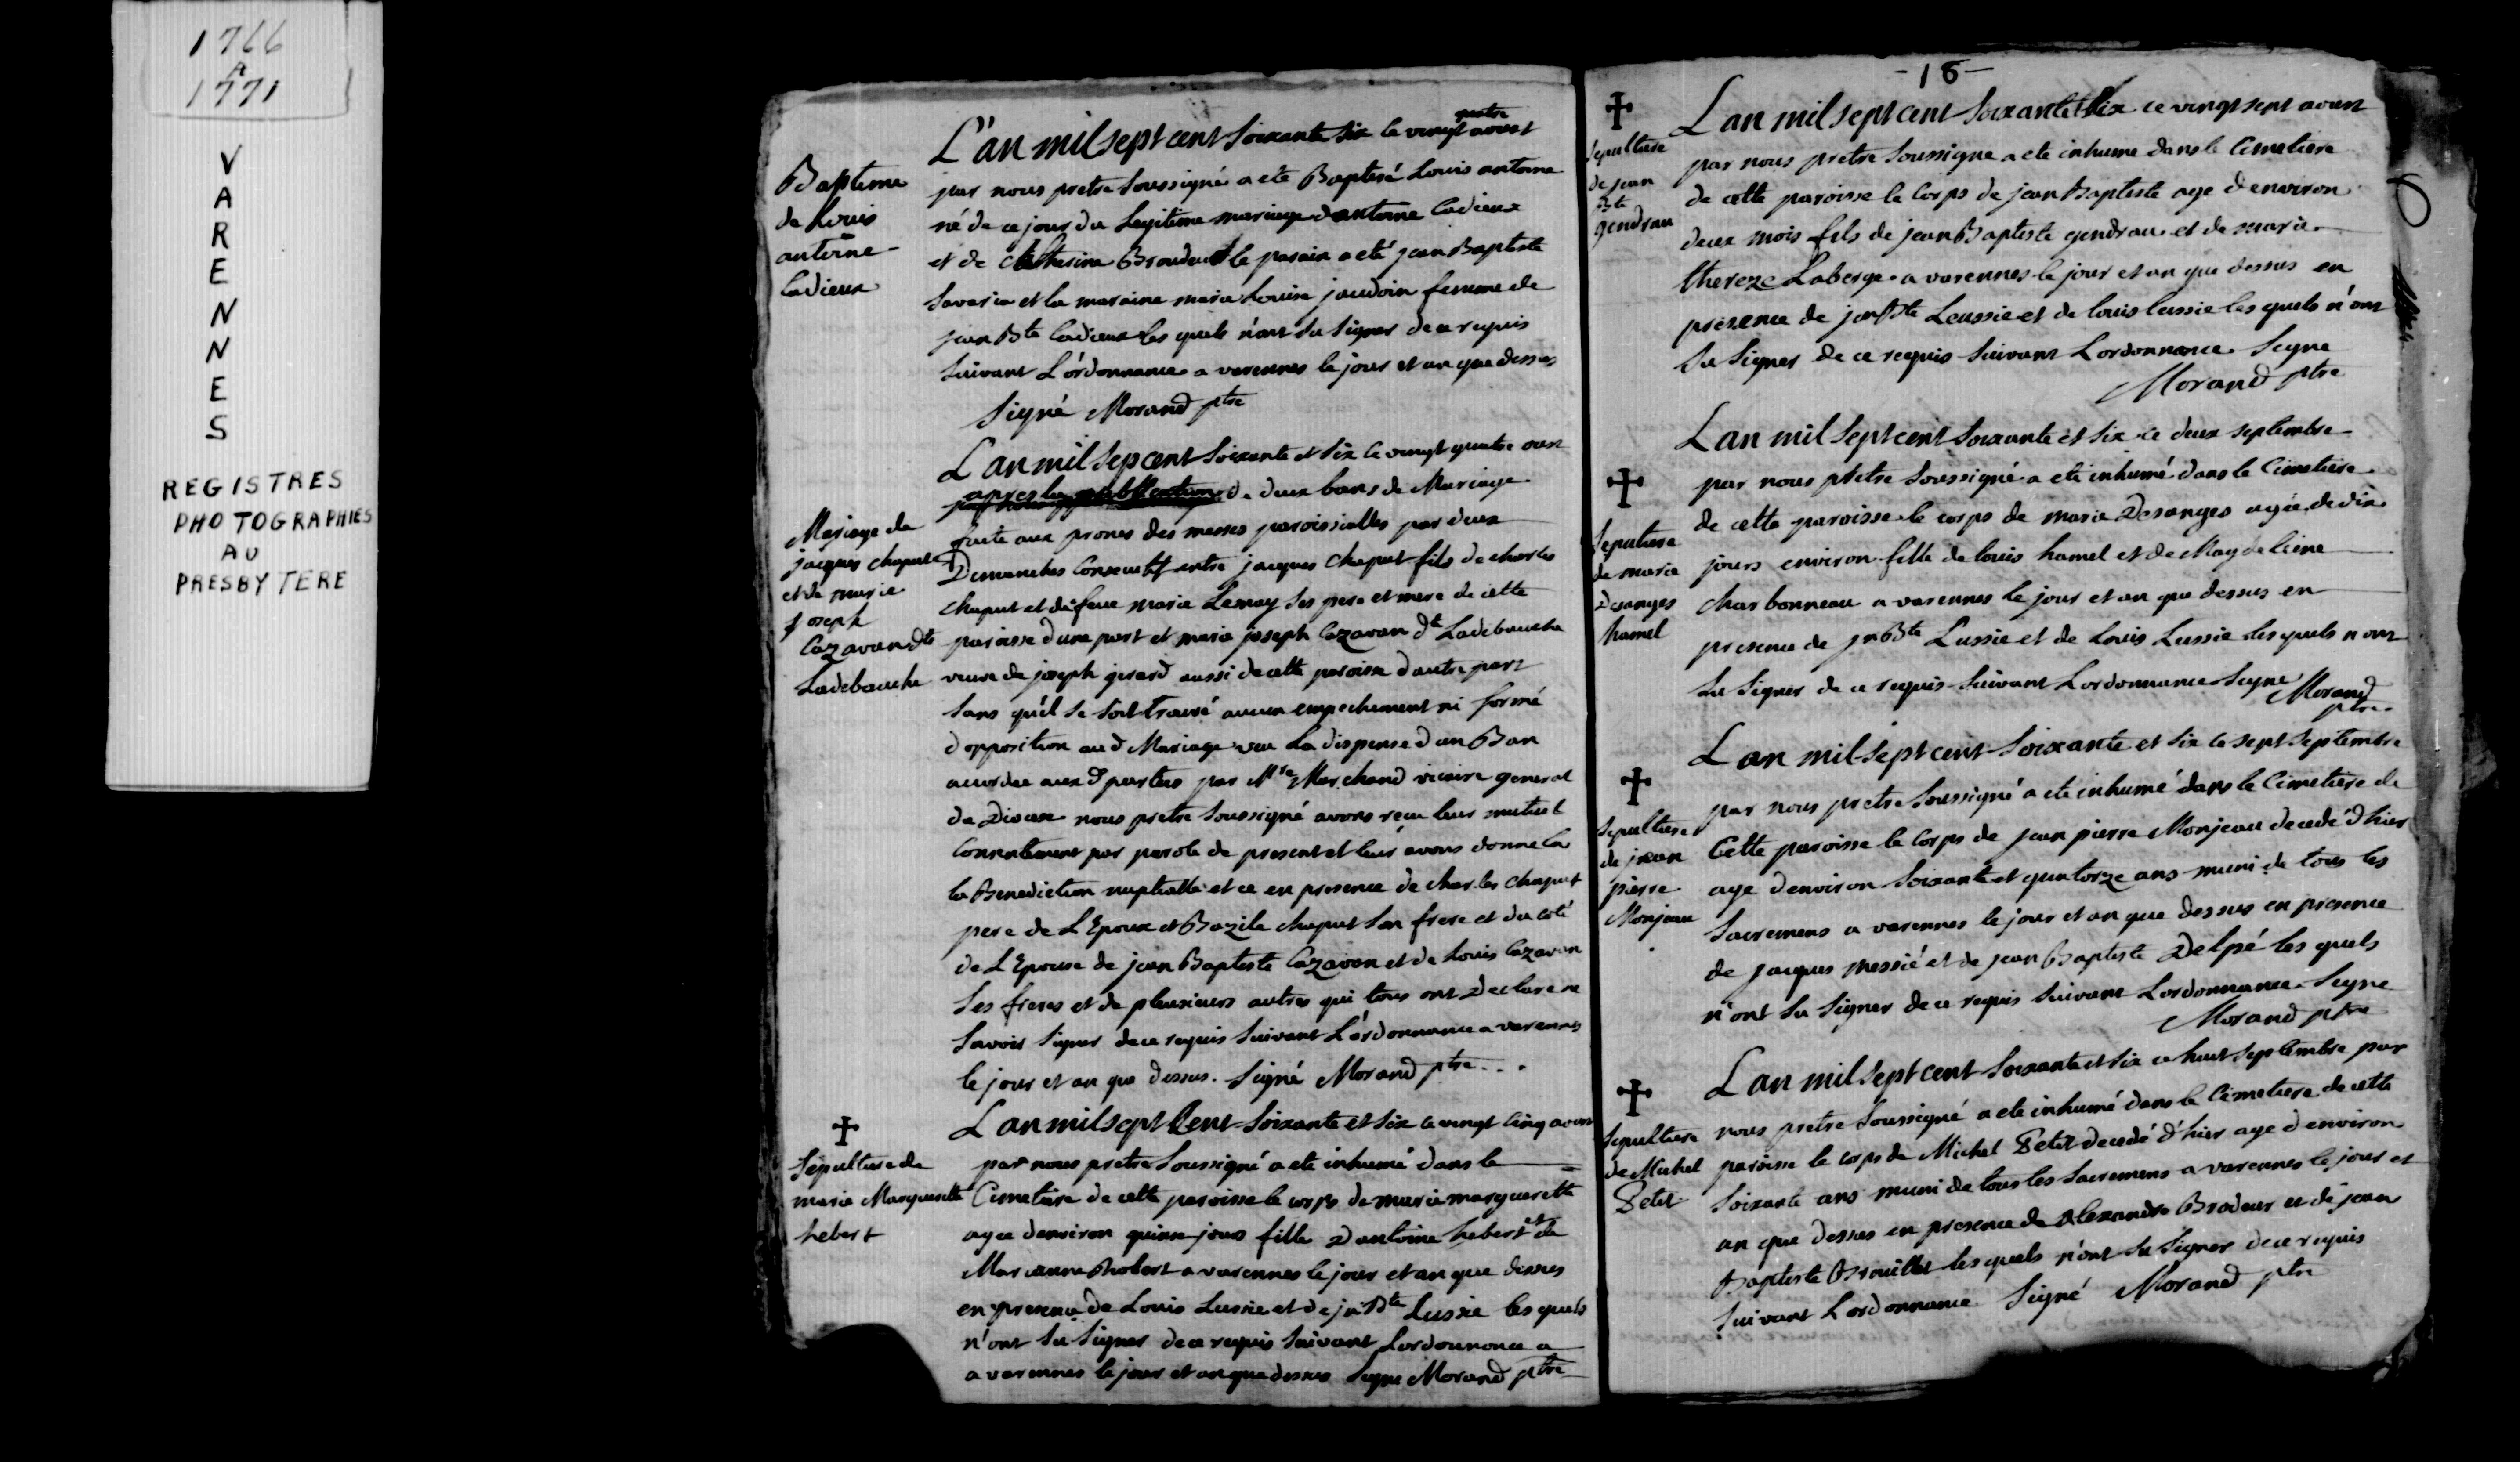 1766
A
1771
VARENNES
REGISTRES
PHOTOGRAPHIES
AU
PRESBYTERE
Bapteme
de Louis
antoine
Cadieux
L'an mil sept cent soixante six le vingt quatre aoust
par nous pretre soussigné a eté Baptisé Louis antoine
né de ce jour du legitime mariage d'antoine Cadieux
et de Catherine le parain a eté jean Baptiste
Savaria et la maraine marie Louise jaudoin femme de
jean Bte Cadieux les quels n'ont su signer de ce requis
suivant L'ordonnance a varennes le jour et an que dessus
Signé Morand ptre
Mariage de
jacques chaput
et de marie
joseph
Cazavan dt
Ladebauche
L an mil sept cent soixante et six le vingt quatre oust
apres la publication de deux bans de Mariage
faite aux prones des messes paroissialles par deux
Dimanches Consecutif entre jacques Chaput fils de charles
chaput et de feue marie Lemay ses pere et mere de cette
paroisse d'une part et marie joseph Cazavan dt Ladebauche
veuve de joseph girard aussi de cette paroisse d'autre part
sans qu'il se soit trouvé aucun empechement ni formé
d'opposition aud Mariage veu La dispense d'un Ban
accordee aux d parties par Mre Marchand vicaire general
de Diocese nous pretre soussigné avons receu leur mutuel
Consentement par parole de present et leur avons donne la
la Benediction nuptialle et ce en presence de charles chaput
pere de L'Epoux et Bazile chaput son frere et du coté
de L'Epouse de jean Baptiste Cazavan et de Louis Cazavan
ses freres et de plusieurs autres qui tous ont Declare ne
savoir signer de ce requis suivant L'ordonnance a varennes
le jour et an que dessus. Signé Morand ptre...
Sepulture de
marie Marguerette
hebert
L an mil sept Cent soixante et six le vingt Cinq aoust
par nous pretre soussigné a eté inhumé dans le
Cimetiere de cette paroisse le corps de marie marguerette
agee d'environ quinze jours fille D'antoine hebert et de
Marianne Robert a varennes le jour et an que dessus
en presence de Louis Lussie et de jn Bte Lussie les quels
n'ont su signer de ce requis suivant Lordonnance a
a varennes le jour et an que dessus Signe Morand ptre
- 16 -
Sepulture
de jean
Bte
gendrau
L an mil sept cent soixante et six ce vingt sept aoust
par nous pretre soussigne a ete inhume dans le Cimetiere
de cette paroisse le Corps de jean Baptiste age d environ
deux mois fils de jean Baptiste gendrau et de marie
thereze Laberge a varennes le jour et an que dessus en
presence de jn Bte Leussie et de louis lussie les quels n'ont
su signer de ce requis suivant Lordonnance Signe
Morand ptre
Sepulture
de marie
Desanges
hamel
L an mil sept cent soixante et six ce deux septembre
par nous pretre soussigné a eté inhumé dans le Cimetiere
de cette paroisse le corps de marie Desanges agée de dix
jours environ fille de louis hamel et de Magdeleine
charbonneau a varennes le jour et an que dessus en
presence de jn Bte Lussie et de Louis Lussie les quels n'ont
su signer de ce requis suivant Lordonnance Signe
Morand
ptre
Sepulture
de jean
pierre
Monjeau
L an mil sept cent soixante et six ce sept septembre
par nous pretre soussigné a eté inhumé dans le Cimetiere de
Cette paroisse le Corps de jean pierre Monjeau decedé d'hier
age d'environ soixante et quatorze ans muni de tous les
sacremens a varennes le jour et an que dessus en presence
de jacques messié et de jean Baptiste Delpé les quels
n'ont su signer de ce requis suivant Lordonnance Signe
Morand ptre
Sepulture
de Michel
Petit
L an mil sept cent soixante et six ce huit septembre par
nous pretre soussigné a eté inhumé dans le Cimetiere de cette
paroisse le corps de Michel Petit decedé d'hier age d'environ
soixante ans muni de tous les sacremens a varennes le jour et
an que dessus en presence de alexandre Brodeur et de jean
Baptiste Brouillet les quels n'ont su signer de ce requis
suivant Lordonnance Signé Morand ptre